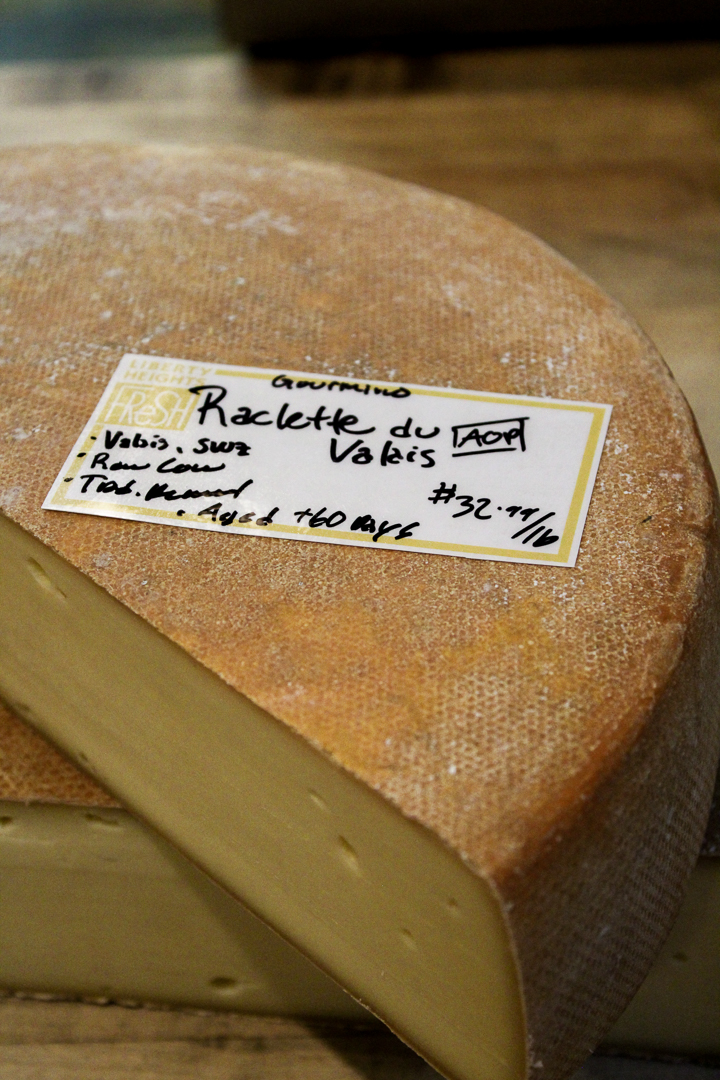 LIBERTY
HEIGHTS
FRESH
Gourmino
Raclette du
Valais
AOP
· Valais, SWZ
· Raw Cow
· Trad. Rennet
· Aged +60 days
#32.99/lb